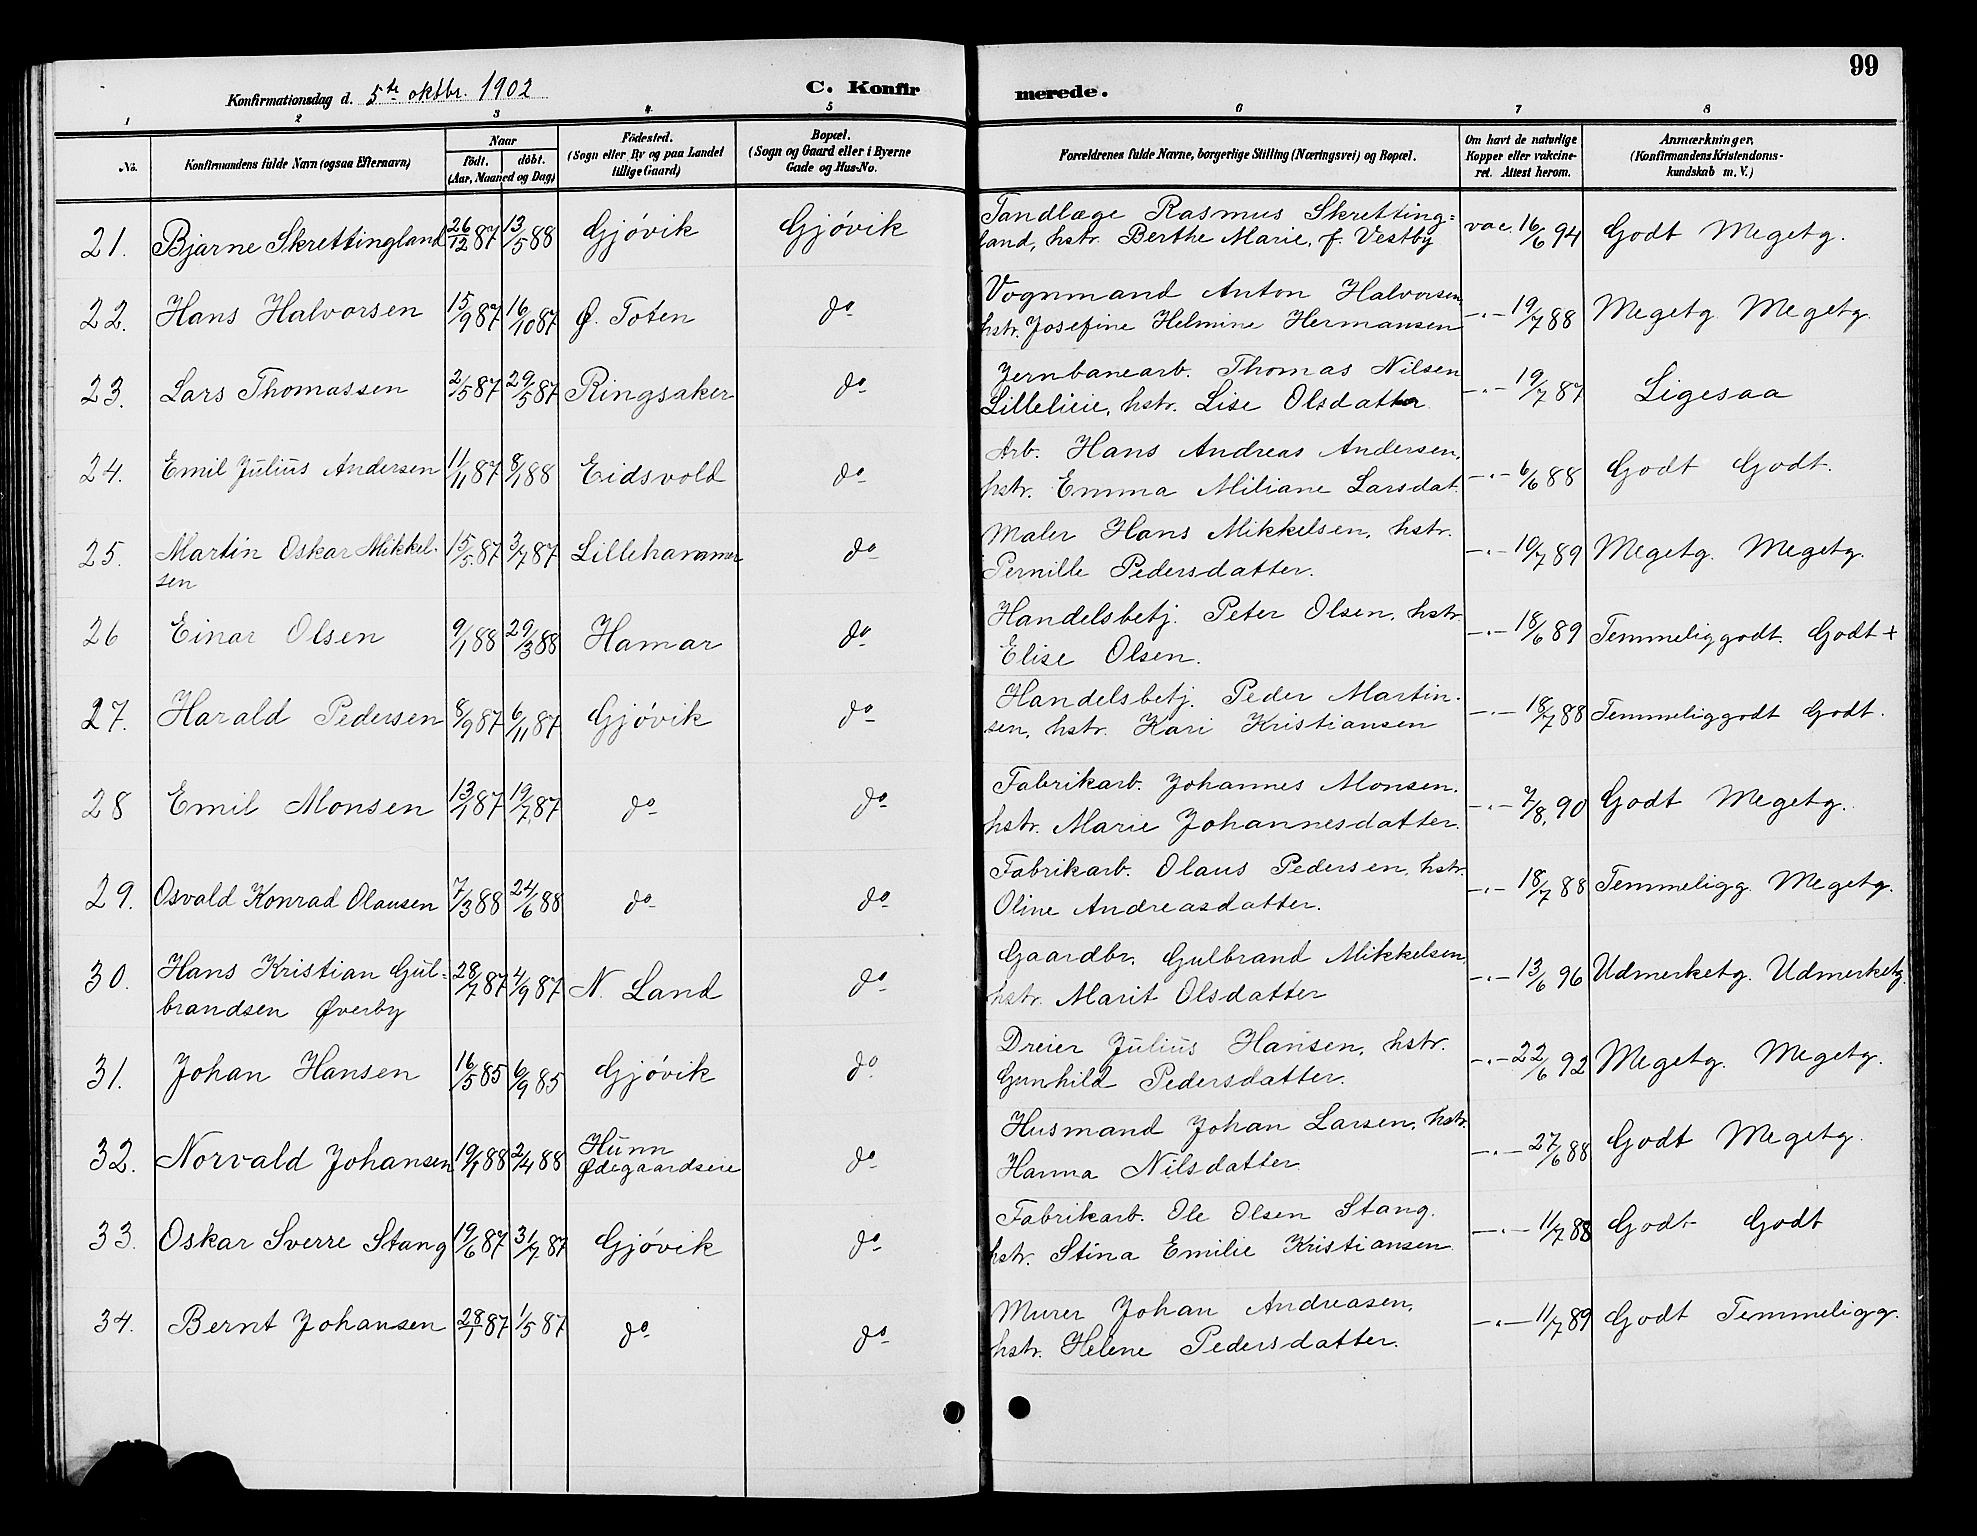 99
Konfirmationsdag d. 5te oktbr. 1902
C. Konfir
merede.
1 2 3 4 5 6 7 8
No.
Konfirmandens fulde Navn (ogsaa Efternavn)
Naar
födt. döbt.
(Aar, Maaned og Dag)
Födested.
(Sogn eller By og paa Landet
tillige Gaard)
Bopæl.
(Sogn og Gaard eller i Byerne
Gade og Hus-No.
Forældrenes fulde Navne, borgerlige Stilling (Næringsvei) og Bopæl.
Om havt de naturlige
Kopper eller vakcine-
ret. Attest herom.
Anmærkninger,
(Konfirmandens Kristendoms-
kundskab m. V.)
21. Bjarne Skrettingland 26/12 87 13/5 88 Gjóvik Gjóvik Tandlæge Rasmus Skretting=
land, hstr. Berthe Marie, f. Vestby vac. 16/6 94 Godt Megetg.
22. Hans Halvorsen 15/9 87 16/10 87 Ø. Toten do Vognmand Anton Halvorsen,
hstr. Josefine Helmine Hermansen -"- 19/7 88 Megetg. Megetg.
23. Lars Thomassen 2/5 87 29/5 87 Ringsaker do Jernbanearb. Thomas Nilsen
Lillelieie, hstr. Lise Olsdatter -"- 19/7 87 Ligesaa
24. Emil Julius Andersen 11/11 87 8/1 88 Eidsvold do Arb. Hans Andreas Andersen,
hstr. Emma Miliane Larsdat. -"- 6/6 88 Godt Godt.
25. Martin Oskar Mikkel-
sen 15/5 87 3/7 87 Lillehammer do Maler Hans Mikkelsen, hstr.
Pernille Pedersdatter. -"- 10/7 89 Megetg. Megetg.
26 Einar Olsen 9/1 88 29/3 88 Hamar do Handelsbetj. Peter Olsen, hstr.
Elise Olsen. -"- 18/6 89 Temmeliggodt. Godt +
27. Harald Pedersen 8/9 87 6/11 87 Gjóvik do Handelsbetj. Peder Martin-
sen, hstr. Kari Kristiansen -"- 18/7 88 Temmeliggodt Godt.
28 Emil Monsen 13/1 87 19/7 87 do do Fabrikarb. Johannes Monsen.
hstr. Marie Johannesdatter. -"- 7/8 90 Godt Megetg.
29. Osvald Konrad Olausen 7/3 88 24/6 88 do do Fabrikarb. Olaus Pedersen, hstr.
Oline Andreasdatter. -"- 18/7 88 Temmeligg. Megetg.
30. Hans Kristian Gul-
brandsen Øverby 28/7 87 4/9 87 N. Land do Gaardbr. Gulbrand Mikkelsen,
hstr. Marit Olsdatter -"- 13/6 96 Udmerketg. Udmerketg.
31. Johan Hansen 16/5 85 6/9 85 Gjóvik do Dreier Julius Hansen, hstr.
Gunhild Pedersdatter. -"- 22/6 92 Megetg. Megetg.
32. Norvald Johansen 19/1 88 2/4 88 Hunn
Ødegaardseie do Husmand Johan Larsen, hstr.
Hanna Nilsdatter -"- 27/6 88 Godt Megetg.
33. Oskar Sverre Stang 19/6 87 31/7 87 Gjóvik do Fabrikarb. Ole Olsen Stang.
hstr. Stina Emilie Kristiansen -"- 11/7 88 Godt Godt
34. Bernt Johansen 28/1 87 1/5 87 do do Murer Johan Andreasen,
hstr. Helene Pedersdatter. -"- 11/7 89 Godt Temmeligg.